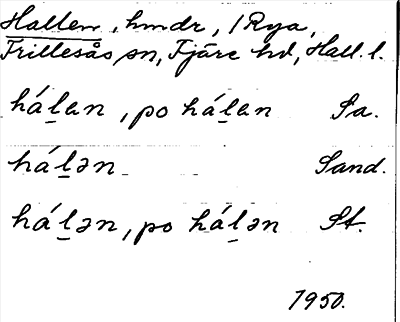 Hallen, hmdr, /Rya,
Frillesås sn, Fjäre hd, Hall. l.
háḻan, po háḻan Sa.
háḻən Sand.
háḻən, po háḻən St.
1950.